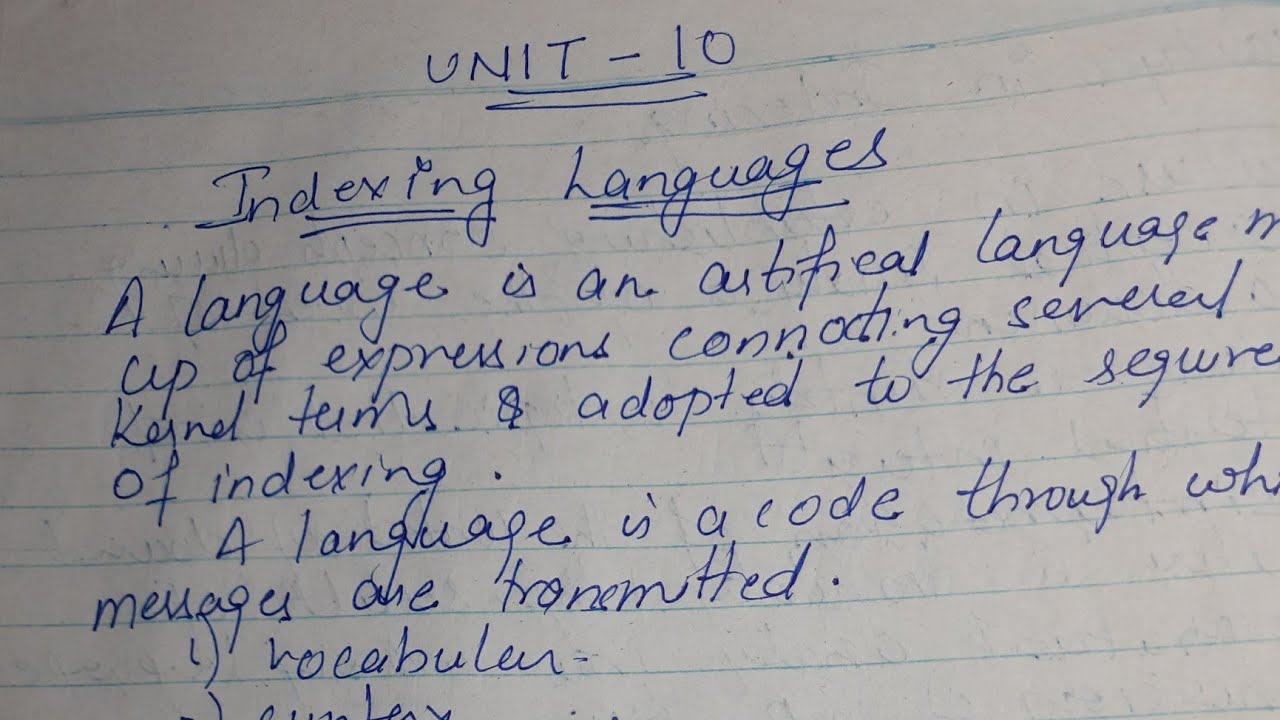 UNIT - 10
Indexing Languages
A language is an artifical language m
up of expressions connocting several
Kernel terms & adopted to the require
of indexing.
A language is a code through whi
messages are transmitted.
1) vocabular-
2) syntax